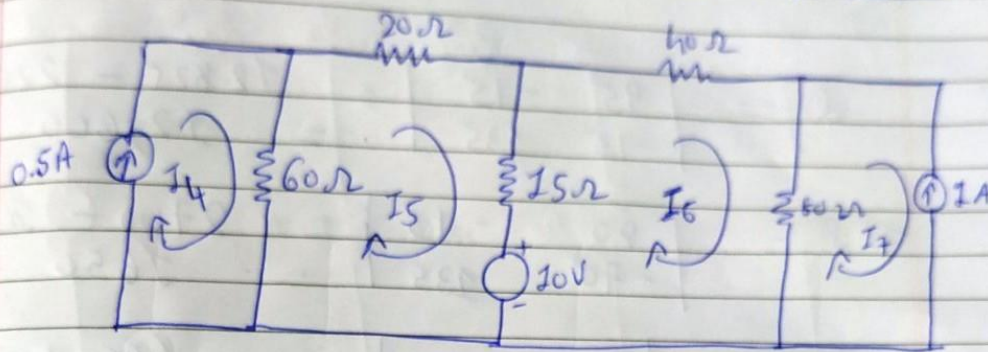 20Ω
40Ω
0.5A
I4
60Ω
I5
15Ω
+
10V
-
I6
I7
1A